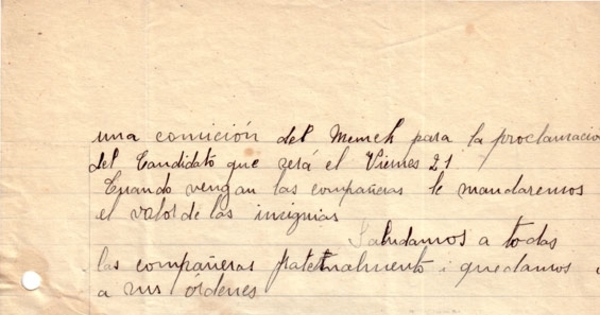 una comición del Memch para la proclamacio
del Candidato que será el Viernes 21
Cuando vengan las compañeras le mandaremos
el valor de las insignias
Saludamos a todas
las compañeras fraternalmento i quedamos
a sus órdenes